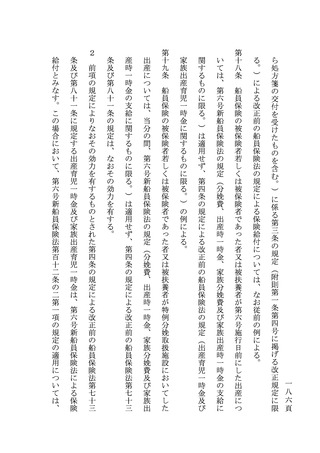 一八六頁
ら処方箋の交付を受けたものを含む。）に係る第三条の規定（附則第一条第四号に掲げる改正規定に限
る。）による改正前の船員保険法の規定による保険給付については、なお従前の例による。
第十八条　船員保険の被保険者若しくは被保険者であった者又は被扶養者が第六号施行日前にした出産につ
いては、第六号新船員保険法の規定（分娩費、出産時一時金、家族分娩費及び家族出産時一時金の支給に
関するものに限る。）は適用せず、第四条の規定による改正前の船員保険法の規定（出産育児一時金及び
家族出産育児一時金に関するものに限る。）の例による。
第十九条　船員保険の被保険者若しくは被保険者であった者又は被扶養者が特例分娩取扱施設においてした
出産については、当分の間、第六号新船員保険法の規定（分娩費、出産時一時金、家族分娩費及び家族出
産時一時金の支給に関するものに限る。）は適用せず、第四条の規定による改正前の船員保険法第七十三
条及び第八十一条の規定は、なおその効力を有する。
２　前項の規定によりなおその効力を有するものとされた第四条の規定による改正前の船員保険法第七十三
条及び第八十一条に規定する出産育児一時金及び家族出産育児一時金は、第六号新船員保険法による保険
給付とみなす。この場合において、第六号新船員保険法第百十二条の二第一項の規定の適用については、